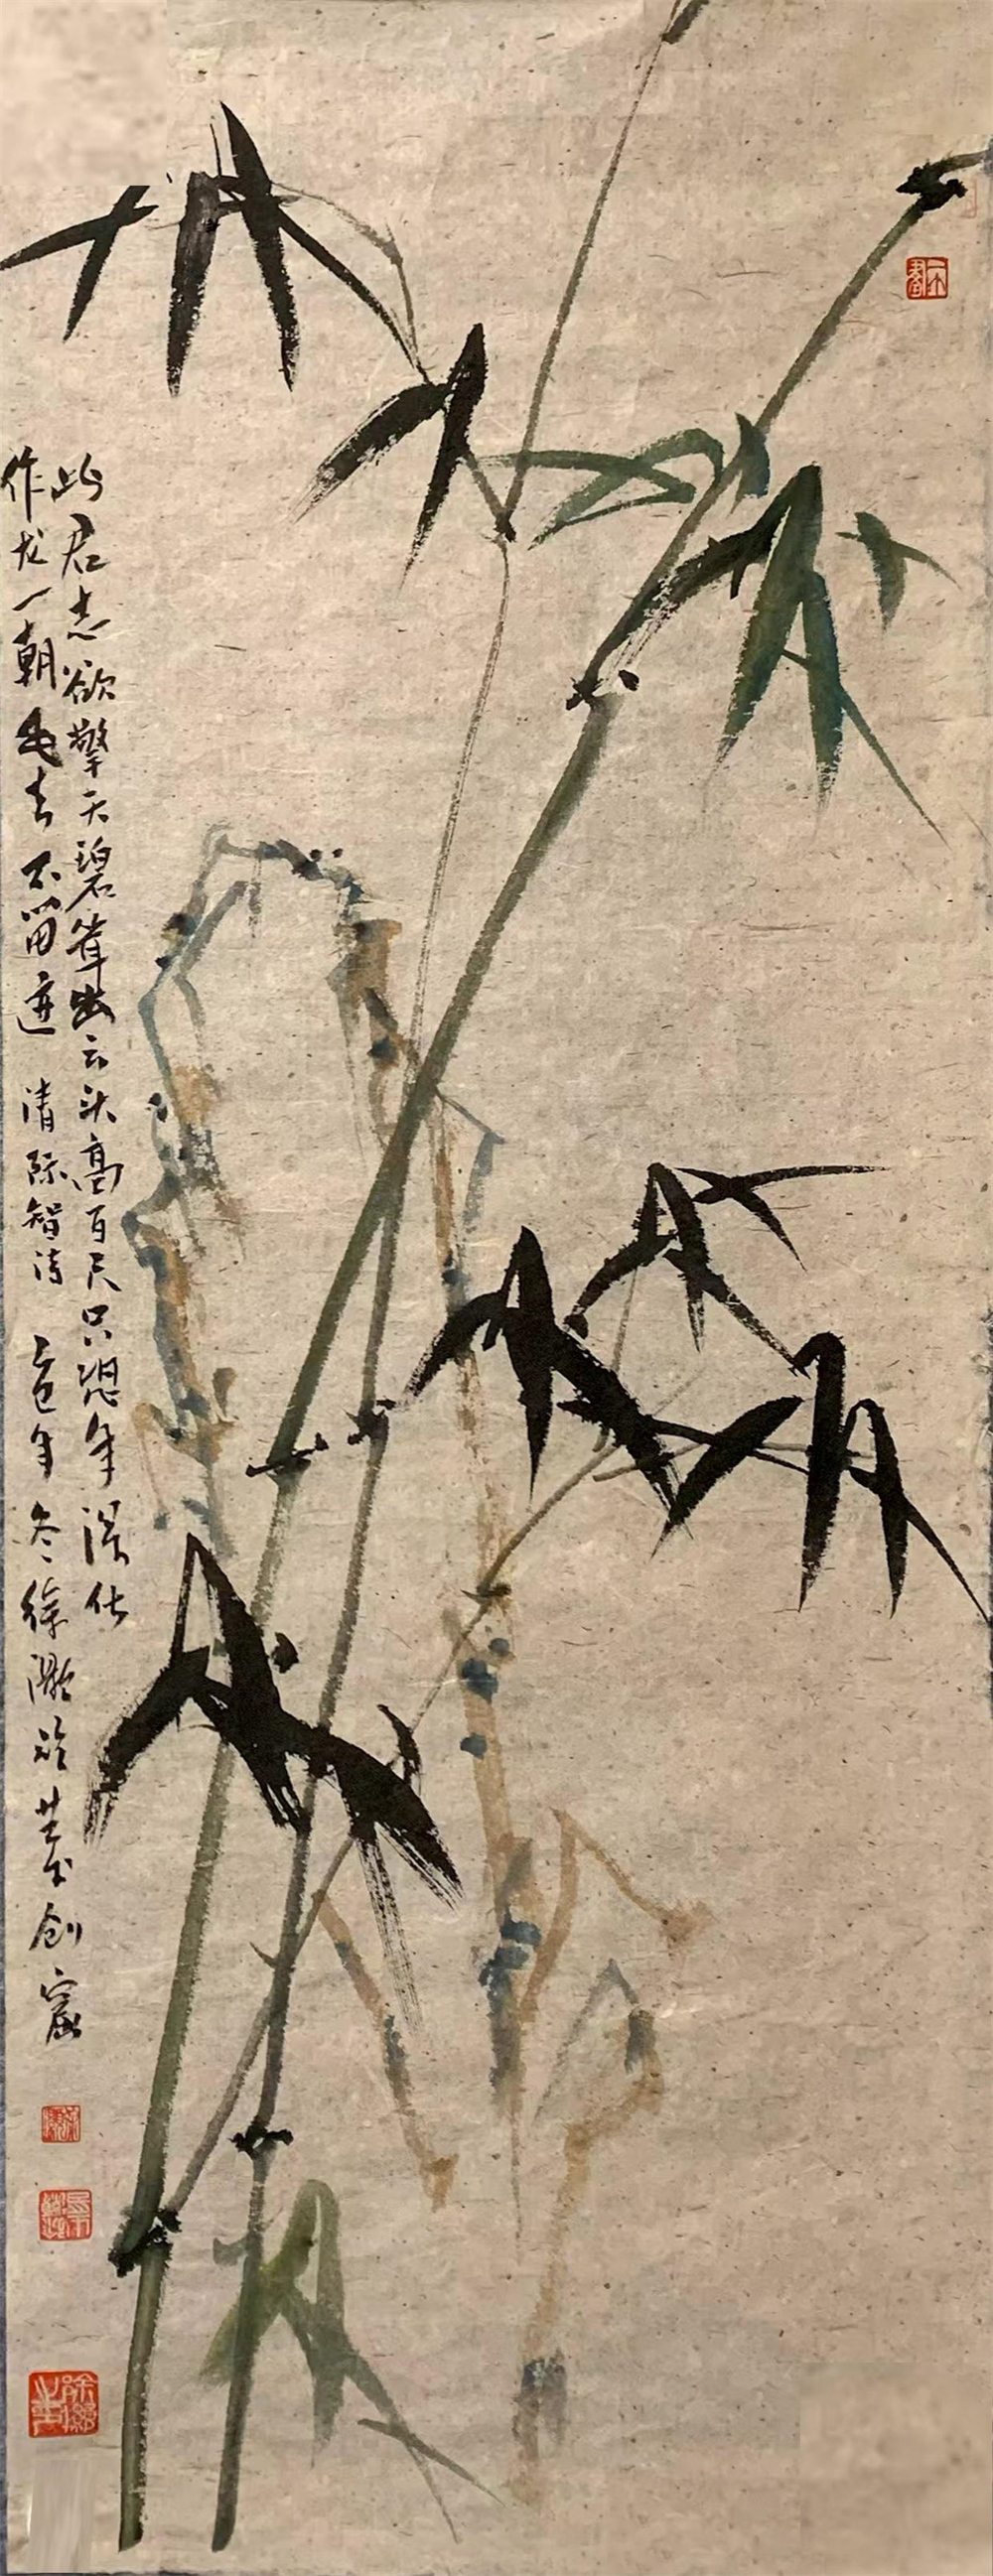 此君志欲擎天碧耸出云头高百尺只恐年深化
作龙一朝飞去不留迹 清 际智诗 乙巳年冬徐灏 草创 窟